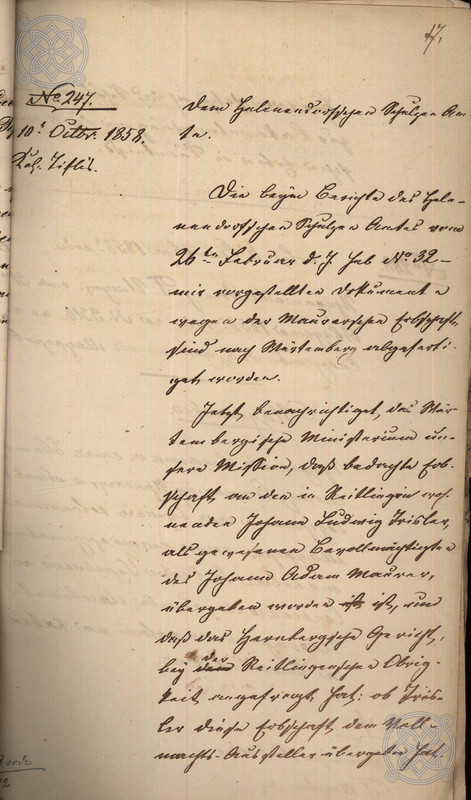 17.
No. 247.
10t Octbr. 1858.
Kol. Tiflis.
Dem Helenendorfschen Schulzen Am-
te.
Die beym Berichte des Hele-
nendorfschen Schulzen Amtes vom
26ten Februar d. J. sub No. 32 –
mir vorgestellten Dokumente
wegen der Maurerschen Erbschaft,
sind nach Würtemberg abgeferti-
get worden.
Jetzt benachrichtiget, das Wür-
tembergische Ministerium un-
sere Mission, daß bedachte Erb-
schaft an den in Reitlingen woh-
nenden Johann Ludwig Trisler,
als gewesenen Bevollmächtigten
des Johann Adam Maurer,
übergeben worden ist, und
daß das Hernbergsche Gericht,
bey der Reitlingenschen Obrig-
keit angefragt hat: ob Tris-
ler diese Erbschaft dem Voll-
machts-Aussteller übergeben hat.